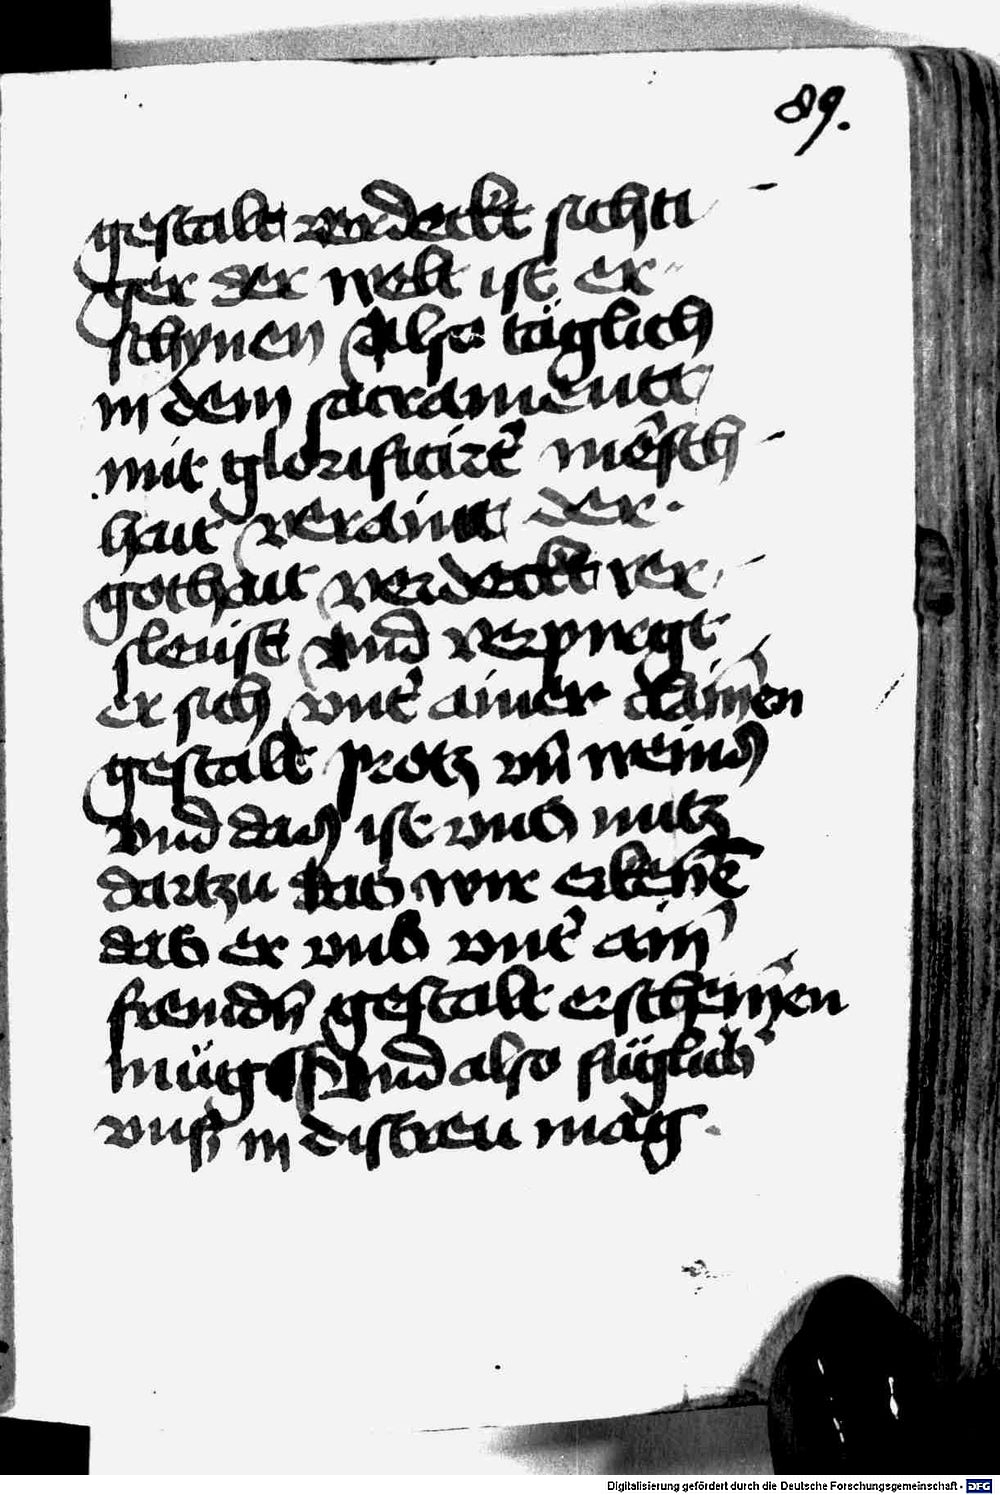 89.
gestalt verdeckt sichti
ger der welt ist er
schynen Also täglich
in dem sacrament
mit glorificirẽ mẽsch
hait veraint der
gothait verdeckt ver
sleust vnd verpirgt
er sich vnt' ainer clainen
gestalt protz vñ weins
vnd das ist vns nutz
dartzu das wir erkenẽ
das er vns vnt' ain
fremdñ gestalt erscheinen
müg vnd also füglich
vnß in distreu mag
Digitalisierung gefördert durch die Deutsche Forschungsgemeinschaft - DFG